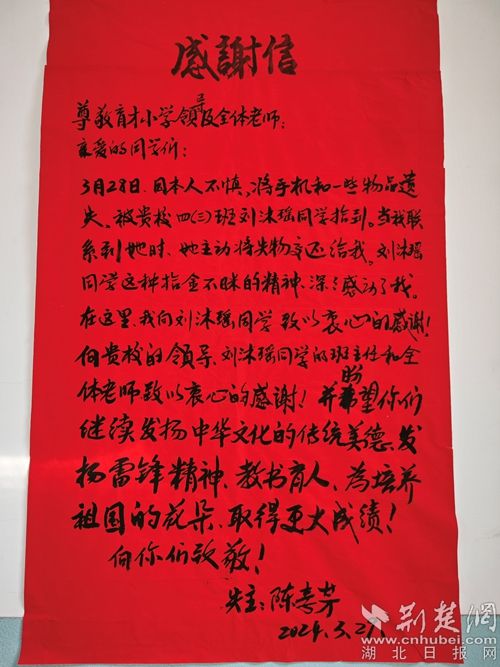 感謝信
尊敬育才小学领导及全体老师：
亲爱的同学们：
3月28日，因本人不慎，将手机和一些物品遗
失，被贵校四(三)班刘沐瑶同学拾到。当我联
系到她时，她主动将失物交还给我。刘沐瑶
同学这种拾金不昧的精神，深深感动了我。
在这里，我向刘沐瑶同学致以衷心的感谢！
向贵校的领导、刘沐瑶同学的班主任和全
体老师致以衷心的感谢！并盼希望你们
继续发扬中华文化的传统美德、发
扬雷锋精神、教书育人、为培养
祖国的花朵、取得更大成绩！
向你们致敬！
失主：陈寿芳
2024.3.29
荆楚網
www.cnhubei.com
湖北日报网